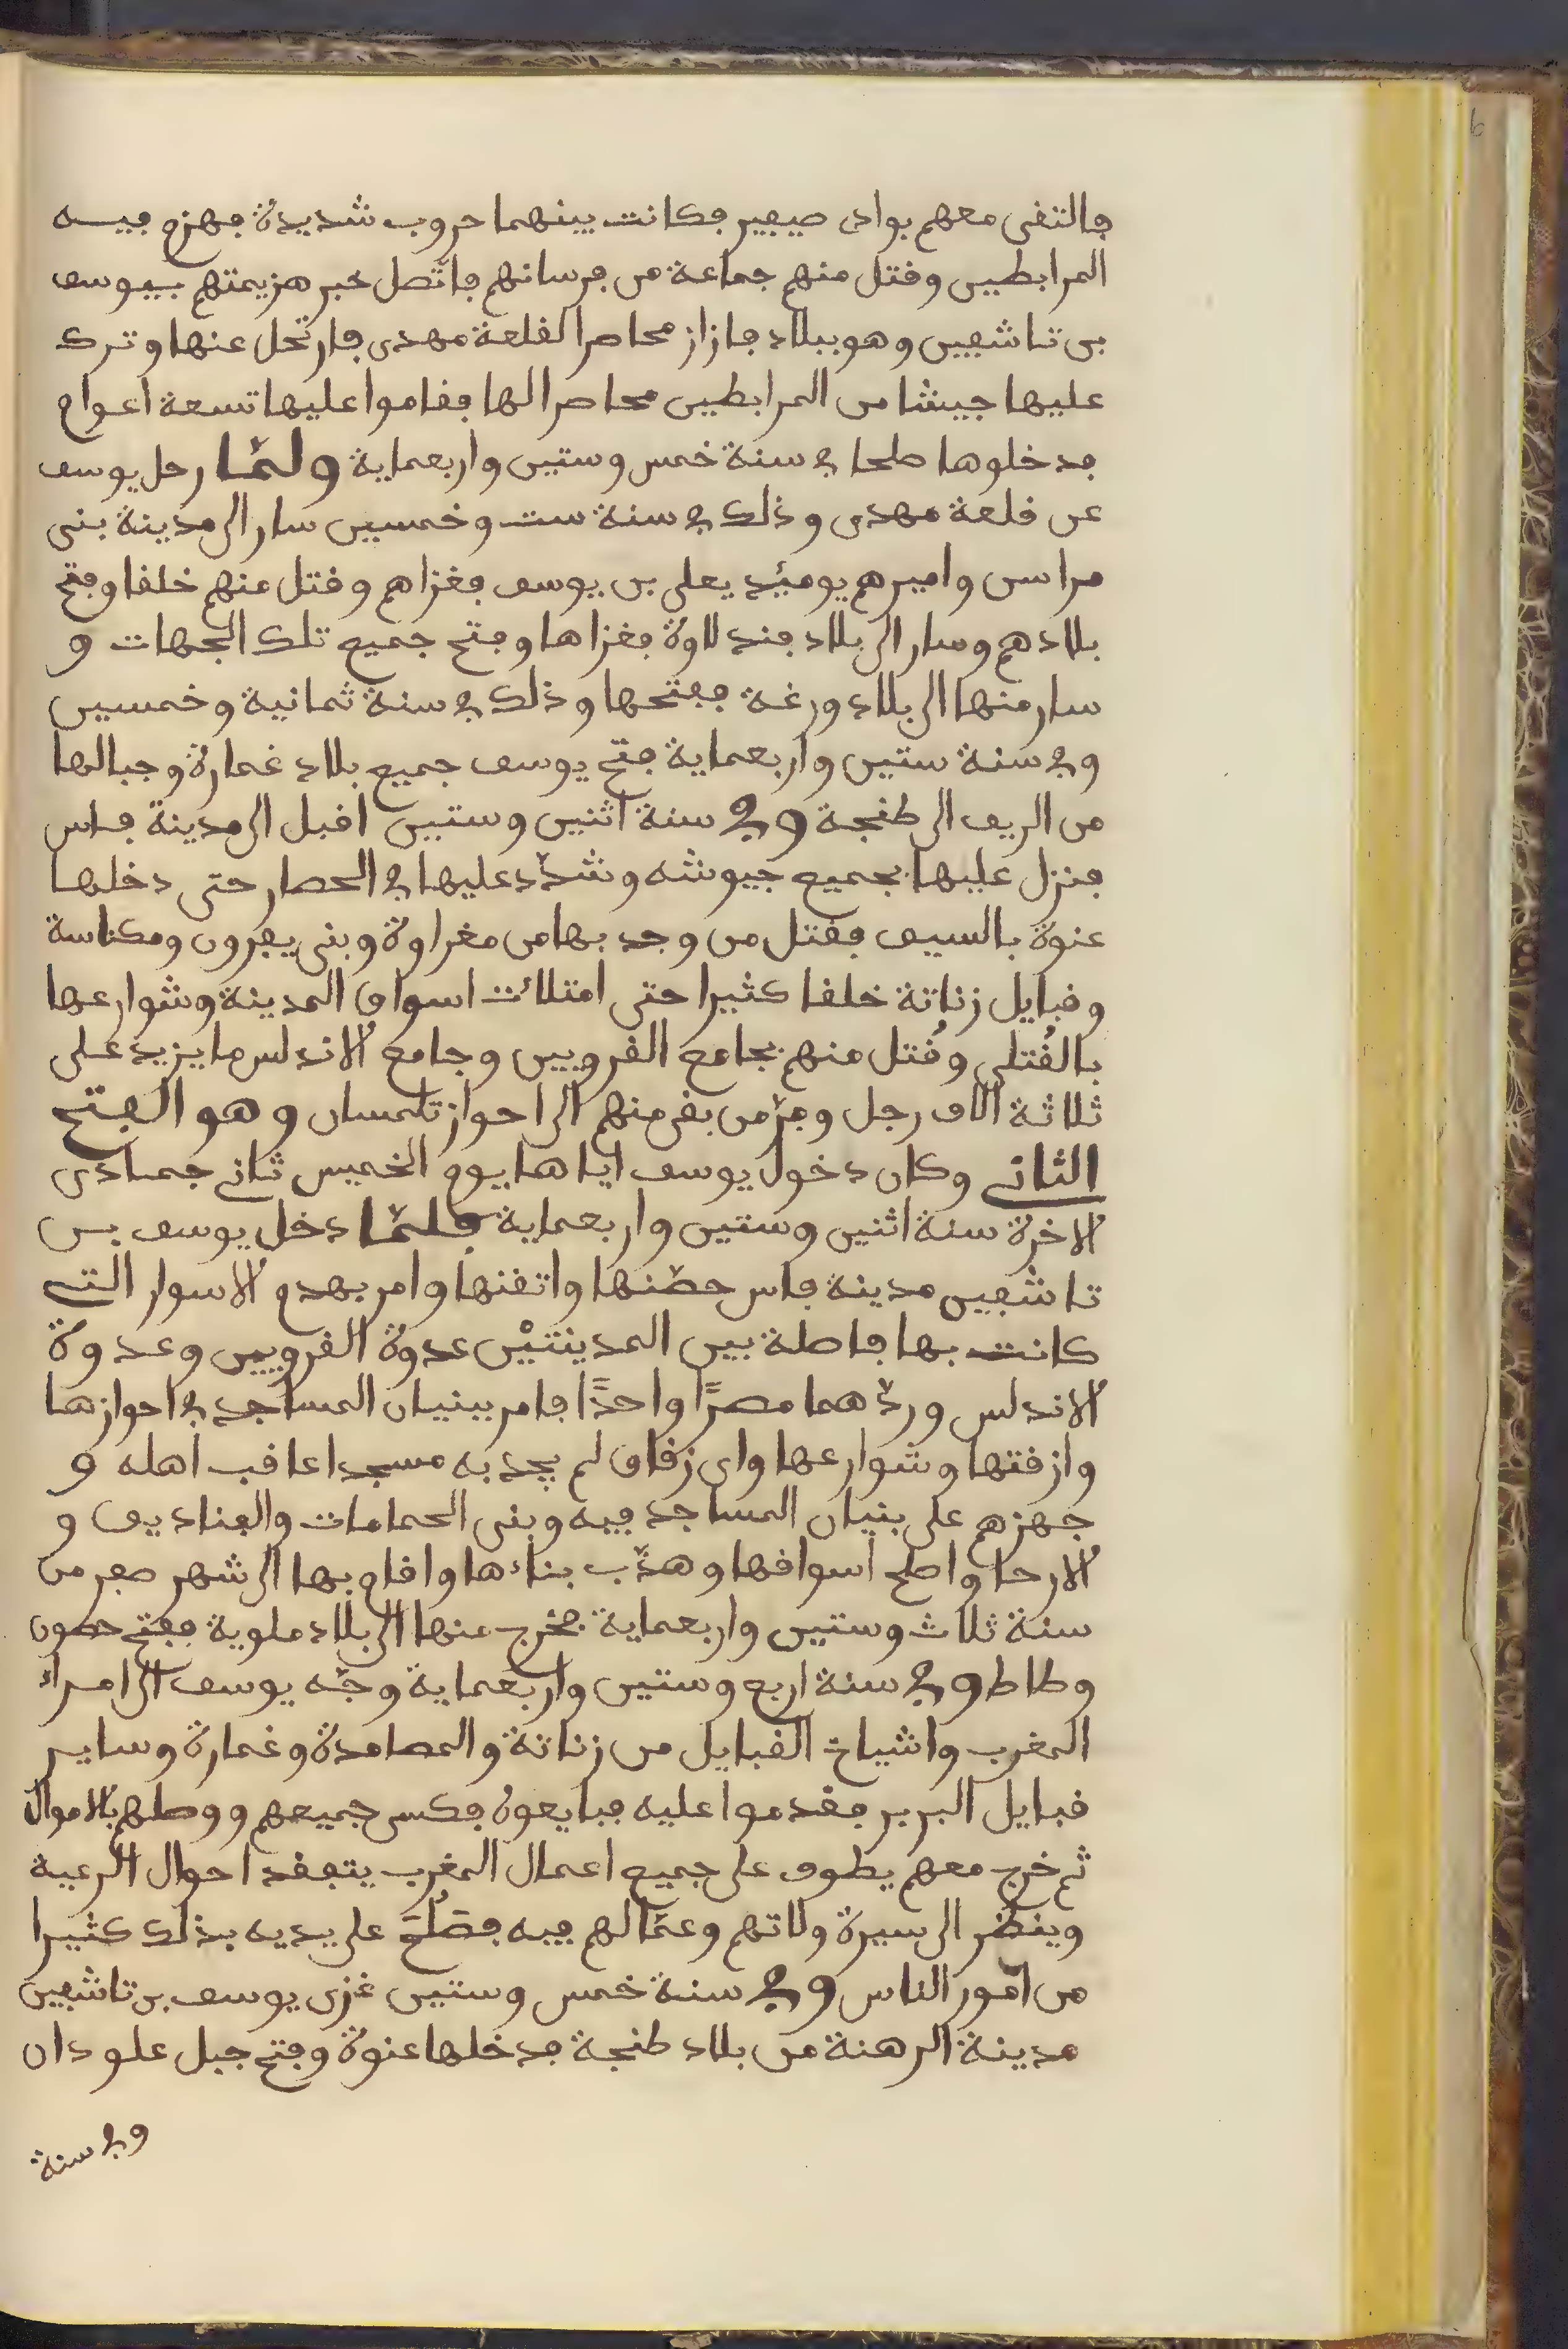 فالتقى معهم بوادى صيفير فكانت بينهما حروب شديدة فهزم فيه
المرابطين وقتل منهم جماعة من فرسانهم فاتّصل خبر هزيمتهم بيوسف
بن تاشفين وهو ببلاد فازاز محاصرا لقلعة مهدى فارتحل عنها وترك
عليها جيشا من المرابطين محاصرا لها فقاموا عليها تسعة اعوام
فدخلوها صلحا في سنة خمس وستين واربعماية ولمّا رحل يوسف
عن قلعة مهدى وذلك في سنة ست وخمسين سار الى مدينة بنى
مراسن واميرهم يوميذ يعلى بن يوسف فغزاهم وقتل منهم خلقا وفتح
بلادهم وسار الى بلاد فندلاوة فغزاها وفتح جميع تلك الجهات و
سار منها الى بلاد ورغة ففتحها وذلك في سنة ثمانية وخمسين
وفي سنة ستين واربعماية فتح يوسف جميع بلاد غمارة وجبالها
من الريف الى طنجة وفي سنة اثنين وستين اقبل الى مدينة فاس
فنزل عليها بجميع جيوشه وشدّد عليها في الحصار حتى دخلها
عنوة بالسيف فقتل من وجد بها من مغراوة وبنى يفرون ومكناسة
وقبايل زناتة خلقا كثيرا حتى امتلات اسواق المدينة وشوارعها
بالقُتلى وقُتل منهم بجامع القرويين وجامع الاندلس ما يزيد على
ثلاثة الاف رجل وفرّ من بقى منهم الى احواز تلمسان وهو الفتح
الثاني وكان دخول يوسف اياها يوم الخميس ثاني جمادى
الاخرة سنة اثنين وستين واربعماية فلمّا دخل يوسف بن
تاشفين مدينة فاس حصّنها واتقنها وامر بهدم الاسوار التي
كانت بها فاصلة بين المدينتيْن عدوة القرويين وعدوة
الاندلس وردّهما مصرًا واحدًا فامر ببنيان المساجد في احوازها
وازقتها وشوارعها واى زقاق لم يجد به مسجدا عاقب اهله و
جهزهم على بنيان المساجد فيه وبنى الحمامات والفناديق و
الارحا واصلح اسواقها وهذّب بناءها واقام بها الى شهر صفر من
سنة ثلاث وستين واربعماية فخرج منها الى بلاد ملوية ففتح حصون
وطاط وفي سنة اربع وستين واربعماية وجّه يوسف الى امراء
المغرب واشياخ القبايل من زناتة والمصامدة وغمارة وساير
قبايل البربر فقدموا عليه فبايعوه فكسى جميعهم ووصلهم بالاموال
ثم خرج معهم يطوف على جميع اعمال المغرب يتفقد احوال الرعية
وينظر الى سيرة ولاتهم وعمّالهم فيه فصَلُحَ على يديه بذلك كثيرا
من امور الناس وفي سنة خمس وستين غزى يوسف بن تاشفين
مدينة الرهنة من بلاد طنجة فدخلها عنوة وفتح جبل علودان
وفي سنة